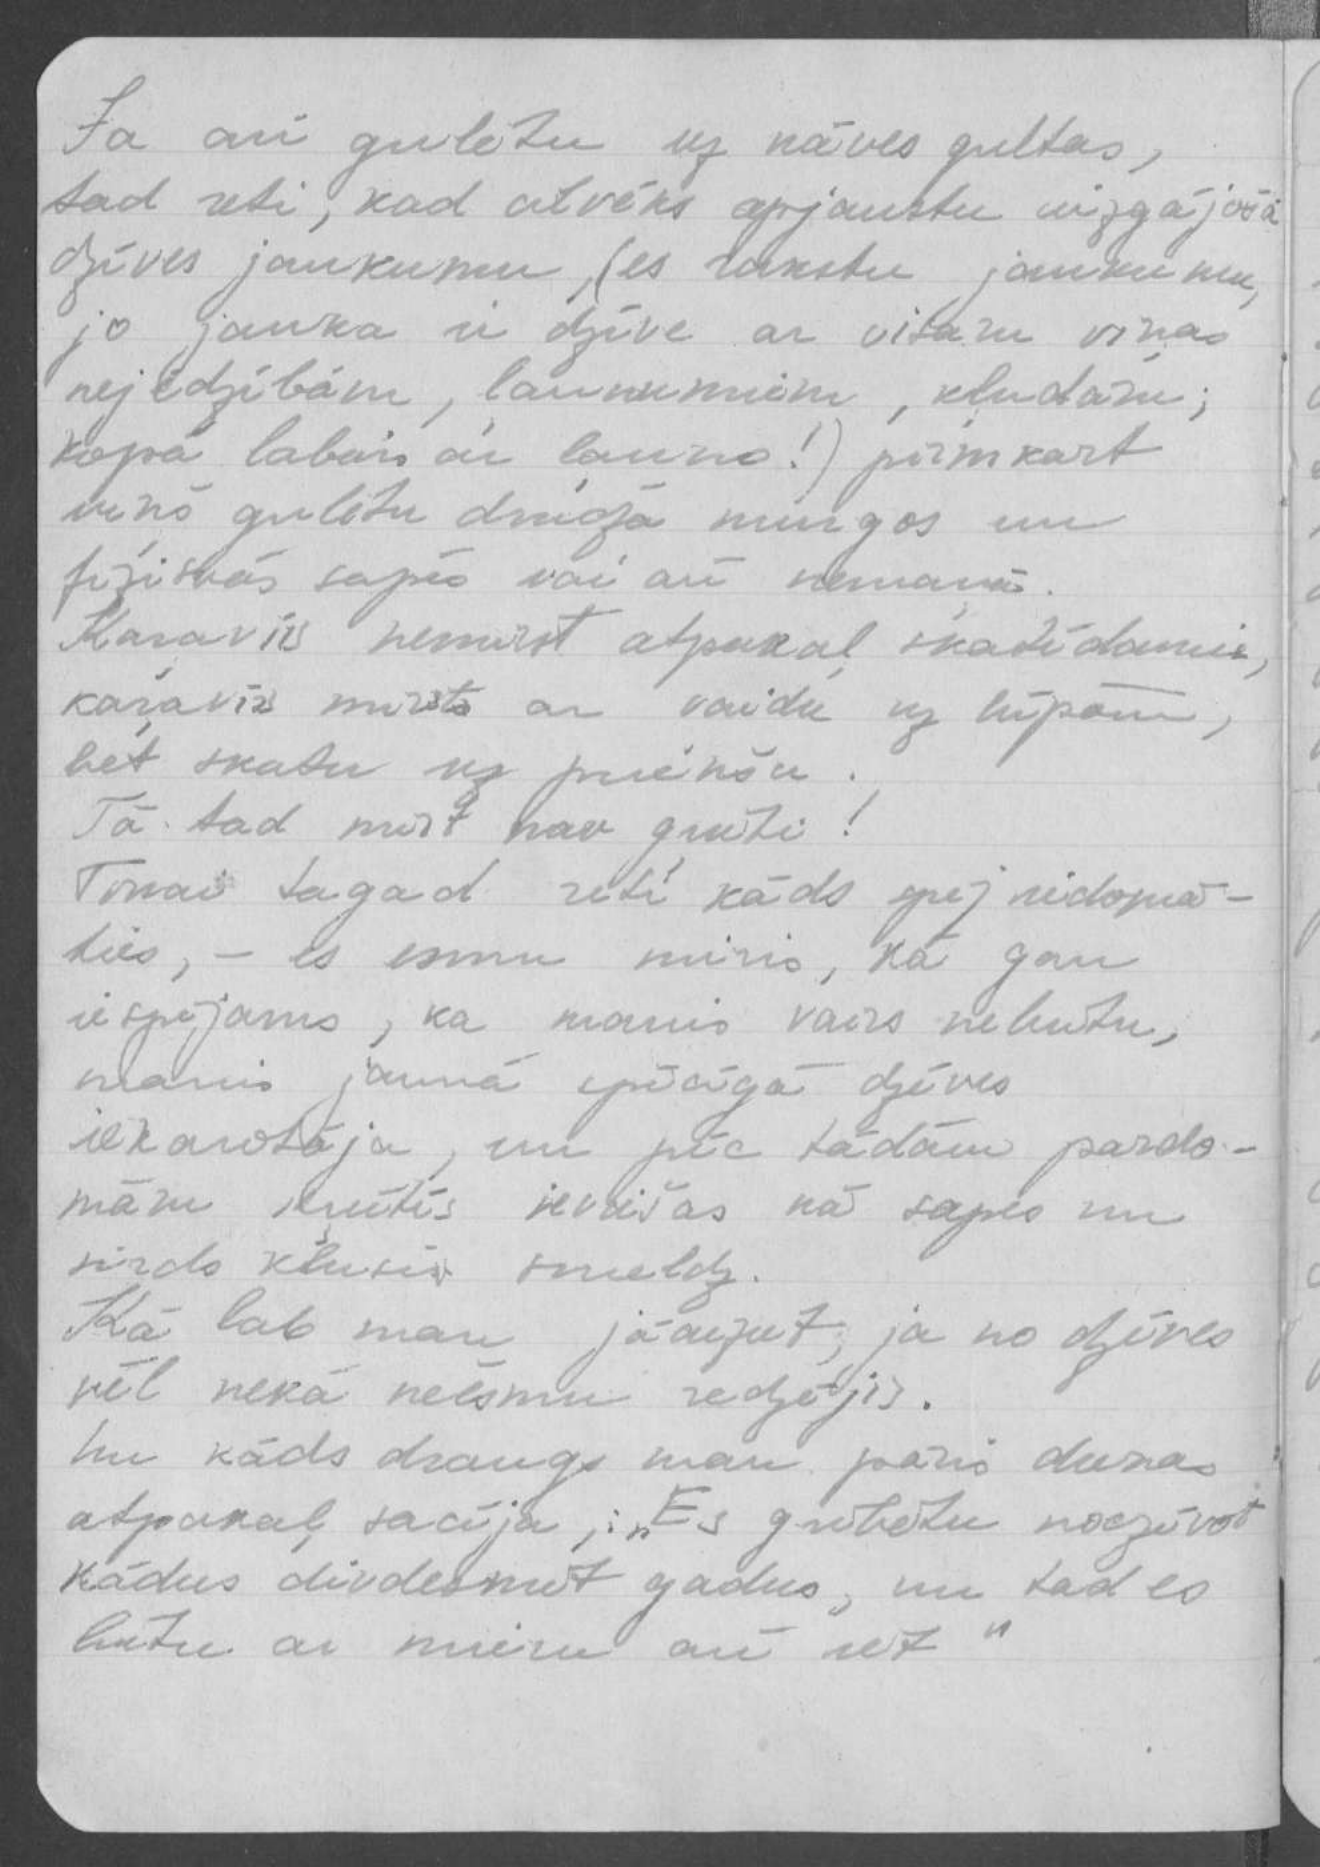 Ja arī gulētu uz nāves gultas,
tad reti, kad cilvēks apjaustu aizgājušā
dzīves jaukumu, (es rakstu jaukumu,
jo jauka ir dzīve ar visām viņas
nejēdzībām, ļaunumiem, kļūdām;
kopā labais ar ļauno!) pirmkart
viņš gulētu drudža murgos un
fiziskās sāpēs vai arī nemaņā.
Karavīrs nemirst atpakaļ skatīdamies,
karavīrs mirst ar vaidu uz lūpām,
bet skatu uz priekšu.
Tā tad mirt nav grūti!
Tomēr tagad reti kāds spēj iedomā-
ties, – es esmu miris, kā gan
iespējams, ka manis vairs nebūtu,
manis jaunā spēcīgā dzīves
iekarotāja, un pēc tādām pārdo-
mām krūtīs ieviešas kā sāpes un
sirds klusi smeldz.
Kā lab man jāaiziet, ja no dzīves
vēl nekā neesmu redzējis.
Un kāds draugs man pāris dienas
atpakaļ sacīja: „Es gribētu nodzīvot
kādus divdesmit gadus, un tad es
būtu ar mieru arī iet"